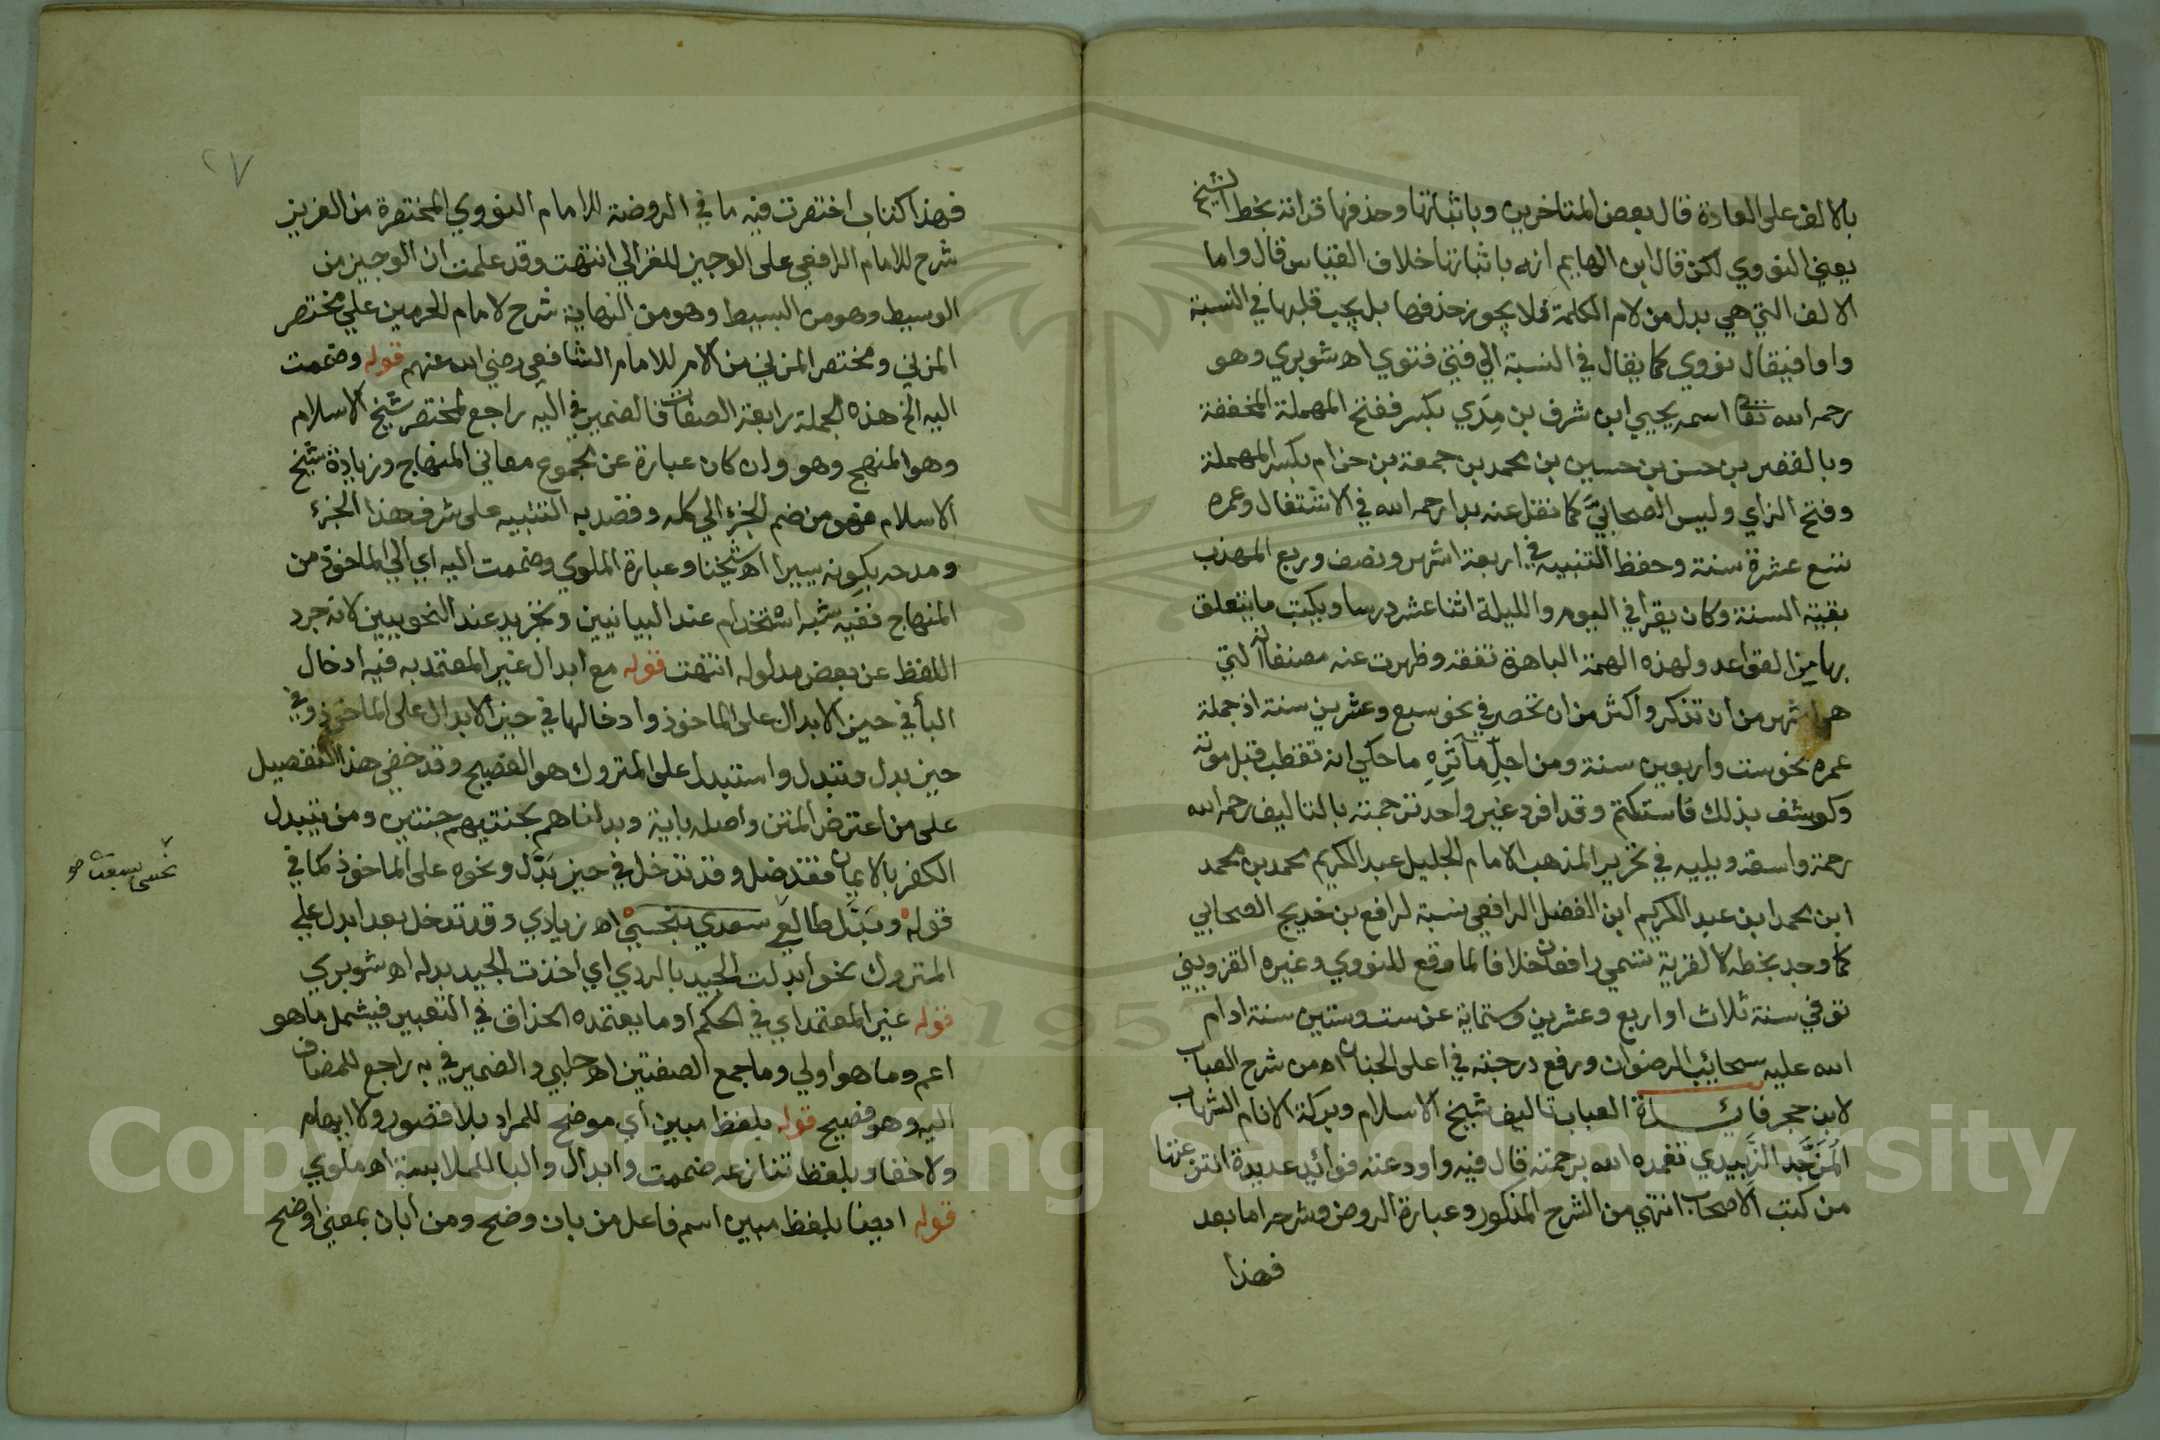 بالالف على العادة قال بعض المتاخرين وباثباتها وحذفها قراته بخط الشيخ
يعني النووي لكن قال ابن الهايم انه باثباتها خلاف القياس قال واما
الالف التي هي بدل من لام الكلمة فلا يجوز حذفها بل يجب قلبها في النسبة
واوا فيقال نووي كما يقال في النسبة الي فتي فتوي اه شوبري وهو
رحمه الله تعا اسمه يحيي ابن شرف بن مِرَي بكسر ففتح المهملة المخففة
وبالقصر بن حسن بن حسين بن محمد بن جمعة بن حزام بكسر المهملة
وفتح الزاي وليس الصحابيَّ كما نقل عنه بدا رحمه الله في الاشتغال وعمره
تسع عشرة سنة وحفظ التنبيه في اربعة اشهر ونصف وربع المهذب
بقية السنة وكان يقرا في اليوم والليلة اثنا عشر درسا ويكتب ما يتعلق
بها من القواعد ولهذه الهمة الباهرة تفقه وظهرت عنه مصنفاته التي
هي اشهر من ان تذكر واكثر من ان تحصر في نحو سبع وعشرين سنة اذ جملة
عمره نحو ست واربعين سنة ومن اجلّ مآثرِهِ ما حكي انه تقطب قبل موته
وكوشف بذلك فاستكتم وقد افرد غير واحد ترجمته بالتاليف رحمه الله
رحمة واسعة ويليه في تحرير المذهب الامام الجليل عبد الكريم محمد بن محمد
ابن محمد ابن عبد الكريم ابن الفضل الرافعي نسبة لرافع بن خديج الصحابي
كما وجد بخطه لا لقرية تسمي رافعان خلافا لما وقع للنووي وغيره القزويني
توفي سنة ثلاث او اربع وعشرين وستماية عن ست وستين سنة ادام
الله عليه سحائب الرضوان ورفع درجته في اعلى الجنان اه من شرح العباب
لابن حجر فائدة العباب تاليف شيخ الاسلام وبركة الانام الشهاب
المُزَجَّد الزَّبيدي تغمده الله برحمته قال فيه واودعته فوائد عديدة التزعتها
من كتب الاصحاب انتهي من الشرح المذكور وعبارة الروض وشرحه اما بعد
فهذا
٢٧
فهذا كتاب اختصرت فيه ما في الروضة للامام النووي المختصرة من العزيز
شرح للامام الرافعي على الوجيز للغزالي انتهت وقد علمت ان الوجيز من
الوسيط وهو من البسيط وهو من النهاية شرح لامام الحرمين علي مختصر
المزني ومختصر المزني من الام للامام الشافعي رضي الله عنهم قوله وضممت
اليه الخ هذه الجملة رابعة الصفات فالضمير في اليه راجع لمختصر شيخ الاسلام
وهو المنهج وهو وان كان عبارة عن مجموع معاني المنهاج وزيادة شيخ
الاسلام فهو من ضم الجزء الي كله وقصد به التنبيه على شرف هذا الجزء
ومدحه بكونه يسيرا اه شيخنا وعبارة الملوي وضممت اليه اي الي الماخوذ من
المنهاج ففيه شبه استخدام عند البيانيين وتجريد عند النحويين لانه جرد
اللفظ عن بعض مدلوله انتهت قوله مع ابدال غير المعتمد به فيه ادخال
البا في حيز الابدال على الماخوذ وادخالها في حيز الابدال على الماخوذ وفي
حيز بدل وتبدل واستبدل على المتروك هو الفصيح وقد خفي هذا التفصيل
على من اعترض المتن واصله باية وبدلناهم بجنتيهم جنتين ومن يتبدل
الكفر بالايمان فقد ضل وقد تدخل في حيز بَدَّل ونحوه على الماخوذ كما في
قوله وبَدَّل طالعي سعدي بنحسي اه زيادي وقد تدخل بعد ابدل علي
المتروك نحو ابدلت الجيد بالردي اي اخذت الجيد بدله اه شوبري
قوله غير المعتمد اي في الحكم او ما يعتمده الحذاق في التعبير فيشمل ما هو
اعم وما هو اولي وما جمع الصفتين اه حلبي والضمير في به راجع للمضاف
اليه وهو فصيح قوله بلفظ مبين اي موضح للمراد بلا قصور ولا ايهام
ولا خفا وبلفظ تنازعه ضممت وابدال والبا للملابسة اه ملوي
قوله ايضا بلفظ مبين اسم فاعل من بان وضح ومن ابان بمعني اوضح
Copyright © King Saud University
1957